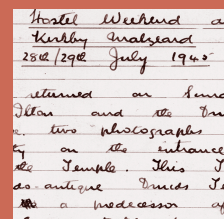 Hostel Weekend a
Kirkby Malzeard
28th/29th July 1945
returned on Sund
Ilton and the Dru
e. two photographs
ty on the entrance
the Temple. This T
do-antique Druids T
a predecessor of